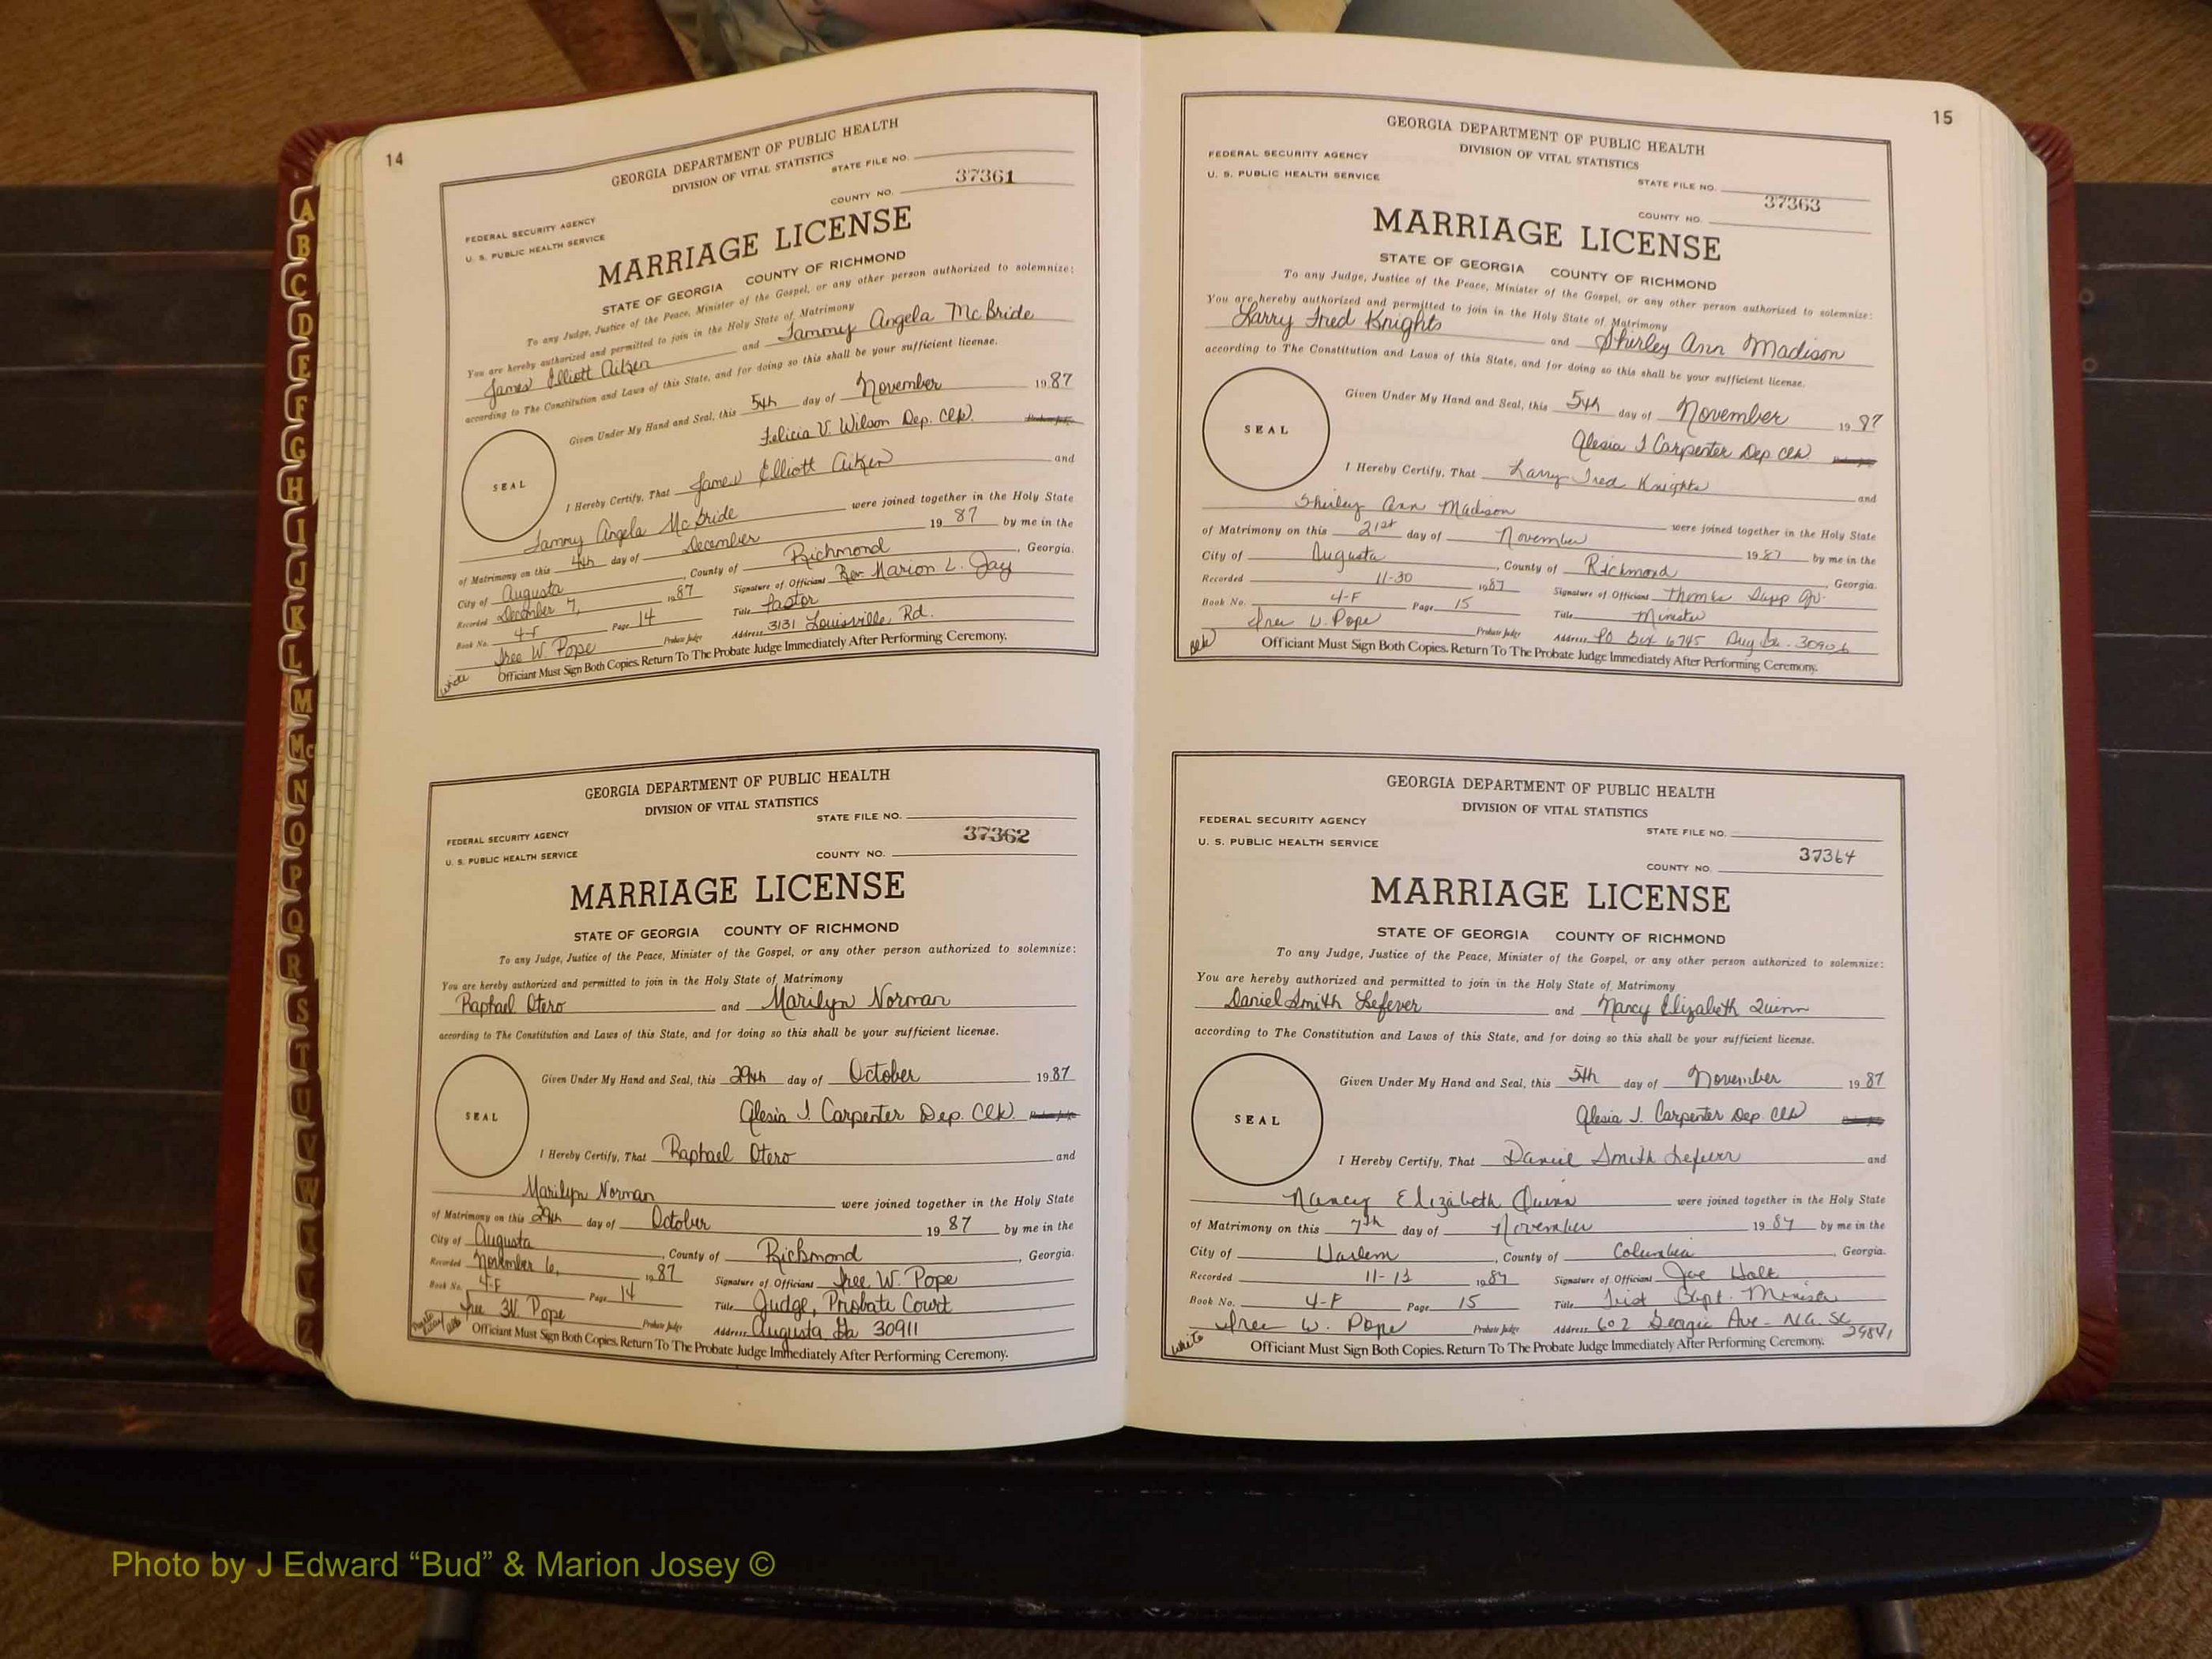 14
GEORGIA DEPARTMENT OF PUBLIC HEALTH
DIVISION OF VITAL STATISTICS
STATE FILE NO.
37361
COUNTY NO.
FEDERAL SECURITY AGENCY
U. S. PUBLIC HEALTH SERVICE
MARRIAGE LICENSE
STATE OF GEORGIA COUNTY OF RICHMOND
To any Judge, Justice of the Peace, Minister of the Gospel, or any other person authorized to solemnize:
You are hereby authorized and permitted to join in the Holy State of Matrimony
James Elliott Aiken and Tammy Angela McBride
according to The Constitution and Laws of this State, and for doing so this shall be your sufficient license.
Given Under My Hand and Seal, this 5th day of November 1987
Felicia V. Wilson Dep. Clk.
SEAL
I Hereby Certify, That James Elliott Aiken and
Tammy Angela McBride were joined together in the Holy State
of Matrimony on this 4th day of December 1987 by me in the
City of Augusta, County of Richmond, Georgia.
Recorded December 7, 1987 Signature of Officiant Rev. Marion L. Jay
Book No. 4-F Page 14 Title Pastor
Iree W. Pope Probate Judge Address 3131 Louisville Rd.
white Officiant Must Sign Both Copies. Return To The Probate Judge Immediately After Performing Ceremony.
GEORGIA DEPARTMENT OF PUBLIC HEALTH
DIVISION OF VITAL STATISTICS
STATE FILE NO.
FEDERAL SECURITY AGENCY
37362
U. S. PUBLIC HEALTH SERVICE
COUNTY NO.
MARRIAGE LICENSE
STATE OF GEORGIA COUNTY OF RICHMOND
To any Judge, Justice of the Peace, Minister of the Gospel, or any other person authorized to solemnize:
You are hereby authorized and permitted to join in the Holy State of Matrimony
Raphael Otero and Marilyn Norman
according to The Constitution and Laws of this State, and for doing so this shall be your sufficient license.
Given Under My Hand and Seal, this 29th day of October 1987
Alesia J. Carpenter Dep. Clk
SEAL
I Hereby Certify, That Raphael Otero and
Marilyn Norman were joined together in the Holy State
of Matrimony on this 29th day of October 1987 by me in the
City of Augusta, County of Richmond, Georgia.
Recorded November 6, 1987 Signature of Officiant Iree W. Pope
Book No. 4-F Page 14 Title Judge, Probate Court
Iree W. Pope Probate Judge Address Augusta Ga 30911
Officiant Must Sign Both Copies. Return To The Probate Judge Immediately After Performing Ceremony.
15
GEORGIA DEPARTMENT OF PUBLIC HEALTH
DIVISION OF VITAL STATISTICS
FEDERAL SECURITY AGENCY
U. S. PUBLIC HEALTH SERVICE
STATE FILE NO.
37363
COUNTY NO.
MARRIAGE LICENSE
STATE OF GEORGIA COUNTY OF RICHMOND
To any Judge, Justice of the Peace, Minister of the Gospel, or any other person authorized to solemnize:
You are hereby authorized and permitted to join in the Holy State of Matrimony
Larry Fred Knights and Shirley Ann Madison
according to The Constitution and Laws of this State, and for doing so this shall be your sufficient license.
Given Under My Hand and Seal, this 5th day of November 1987
Alesia J Carpenter Dep Clk.
SEAL
I Hereby Certify, That Larry Fred Knights and
Shirley Ann Madison were joined together in the Holy State
of Matrimony on this 21st day of November 1987 by me in the
City of Augusta, County of Richmond, Georgia.
Recorded 11-30 1987 Signature of Officiant Jr.
Book No. 4-F Page 15 Title Minister
Iree W. Pope Probate Judge Address PO Box 6745 Aug Ga. 30906
Blk Officiant Must Sign Both Copies. Return To The Probate Judge Immediately After Performing Ceremony.
GEORGIA DEPARTMENT OF PUBLIC HEALTH
DIVISION OF VITAL STATISTICS
FEDERAL SECURITY AGENCY
STATE FILE NO.
U. S. PUBLIC HEALTH SERVICE
37364
COUNTY NO.
MARRIAGE LICENSE
STATE OF GEORGIA COUNTY OF RICHMOND
To any Judge, Justice of the Peace, Minister of the Gospel, or any other person authorized to solemnize:
You are hereby authorized and permitted to join in the Holy State of Matrimony
Daniel Smith Lefever and Nancy Elizabeth Quinn
according to The Constitution and Laws of this State, and for doing so this shall be your sufficient license.
Given Under My Hand and Seal, this 5th day of November 1987
Alesia J. Carpenter Dep Clk
SEAL
I Hereby Certify, That Daniel Smith Lefever and
Nancy Elizabeth Quinn were joined together in the Holy State
of Matrimony on this 7th day of November 1987 by me in the
City of Harlem, County of Columbia, Georgia.
Recorded 11-13 1987 Signature of Officiant Joe Holt
Book No. 4-F Page 15 Title First Bapt. Minister
Iree W. Pope Probate Judge Address 602 Georgia Ave - N.A. SC 29841
white Officiant Must Sign Both Copies. Return To The Probate Judge Immediately After Performing Ceremony.
A
B
C
D
E
F
G
H
I
J
K
L
M
Mc
N
O
P
Q
R
S
T
U
V
W
Z
Photo by J Edward “Bud” & Marion Josey ©